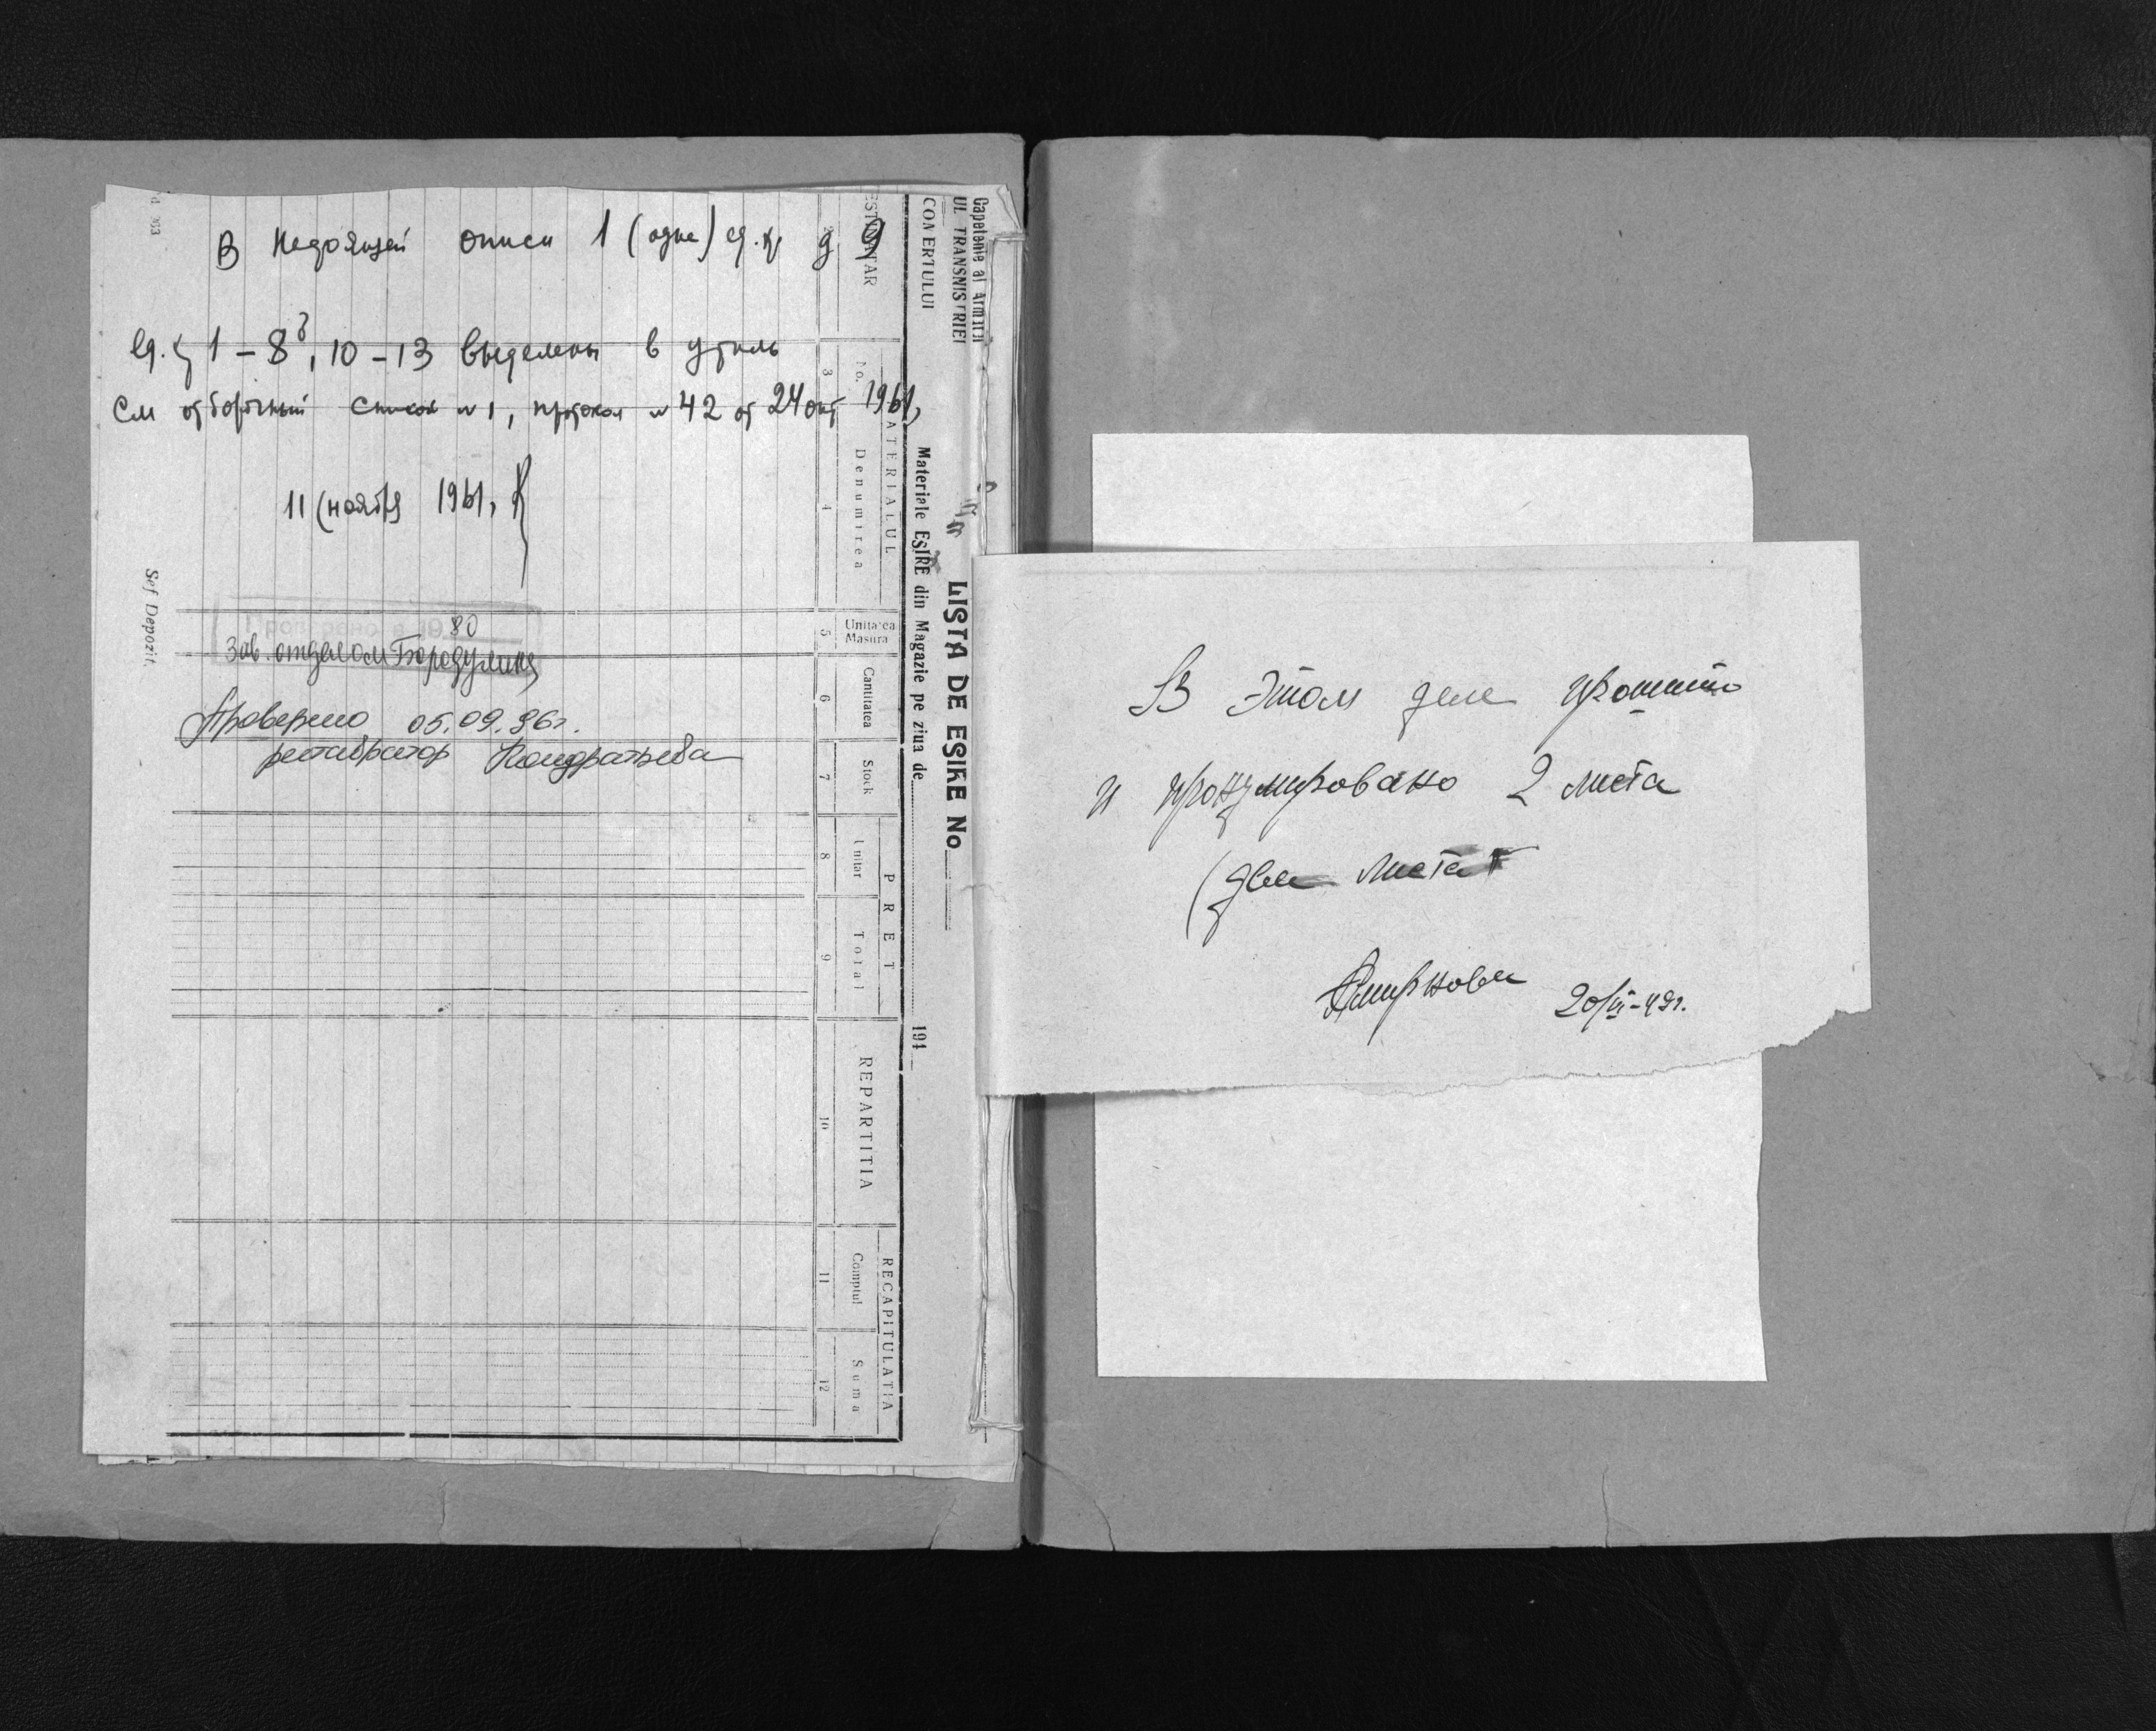 В настоящей описи 1 (одна) ед. хр 9
Ед. 1-8, 10-13 выделены в утиль
См отборочный список №1, протокол №42 от 24 окт 1961,
11 ноября 1961,
Проверено в 1980
Зав. отделом Бородулина
Проверено 05.09.86г.
реставратор Кондратьева
Sef Depozit.
Capetenie al Armatei
UL TRANSNISTRIEI
LISTA DE ESIRE No
Materiale EȘIRE din Magazie pe ziua de 194
MATERIALUL
No.
Denumirea
Unitatea
Masura
Cantitatea
Stock
PRET
Unitar
Total
REPARTITIA
RECAPITULATIA
Comptul
Suma
3 4 5 6 7 8 9 10 11 12
В этом деле прошито
и пронумеровано 2 листа
(два листа
Смирнова 20/VI-49г.